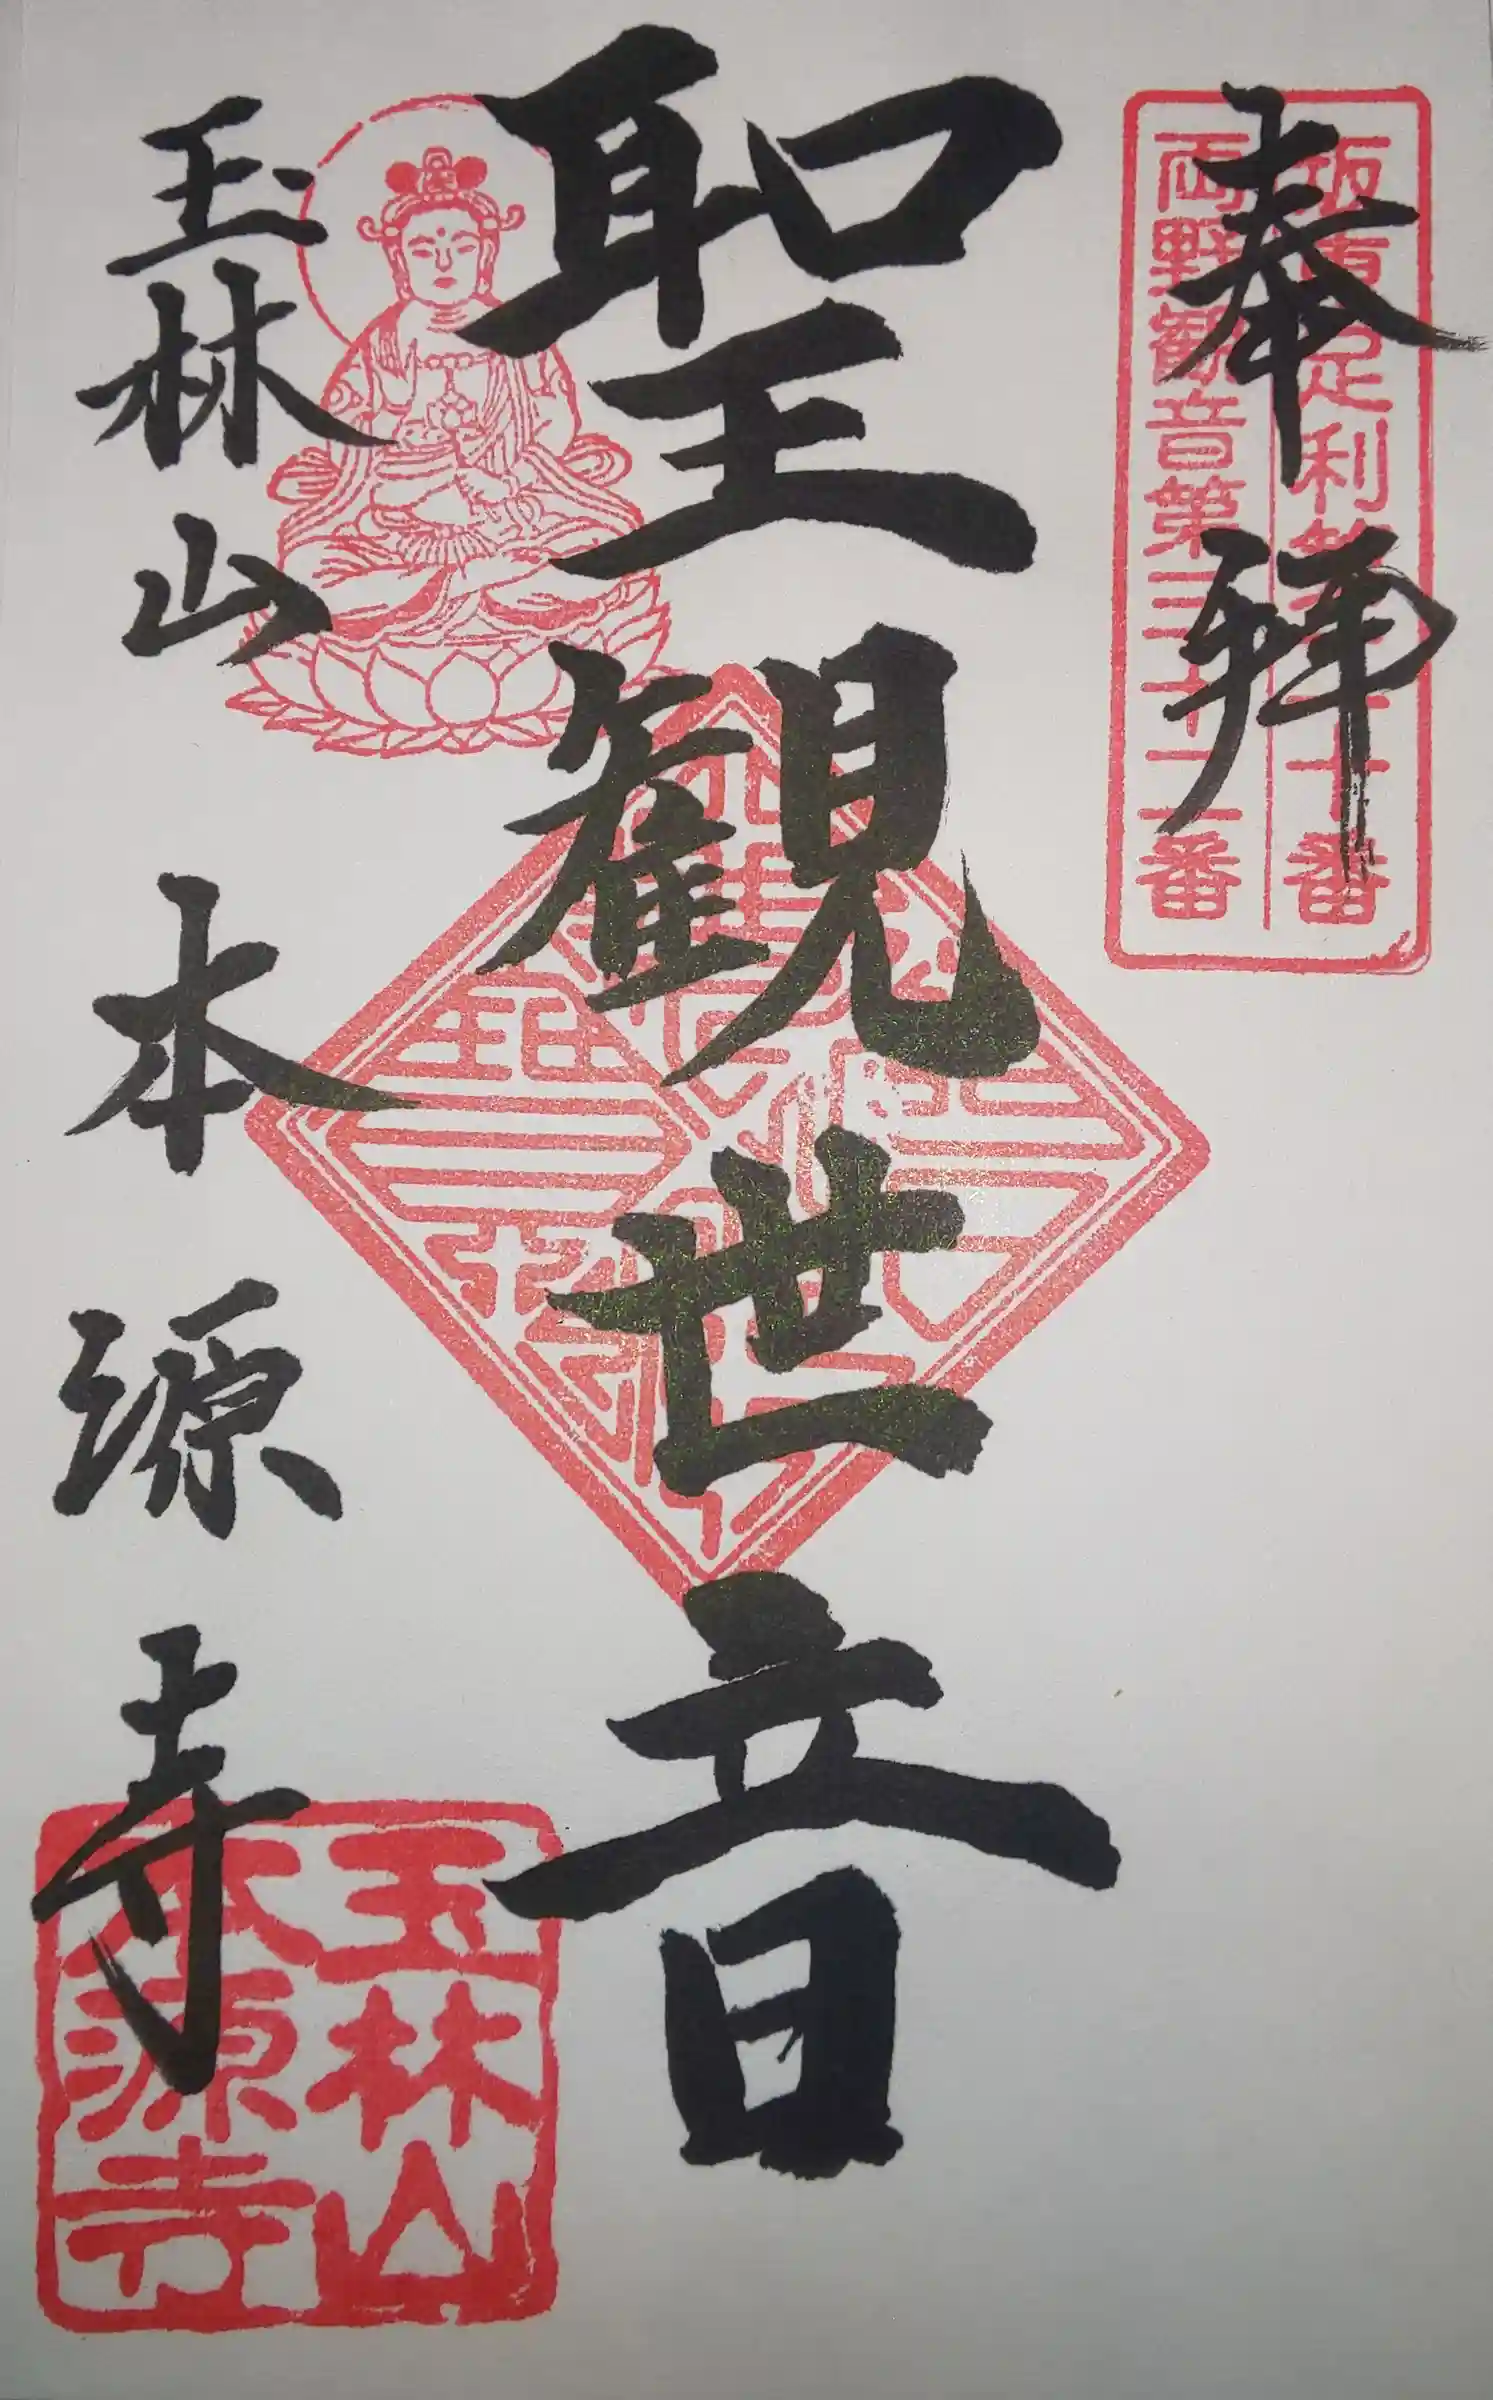 奉拝
坂東足利第二十番
両野観音第三十二番
聖観世音
玉林山
本源寺
玉林山
本源寺